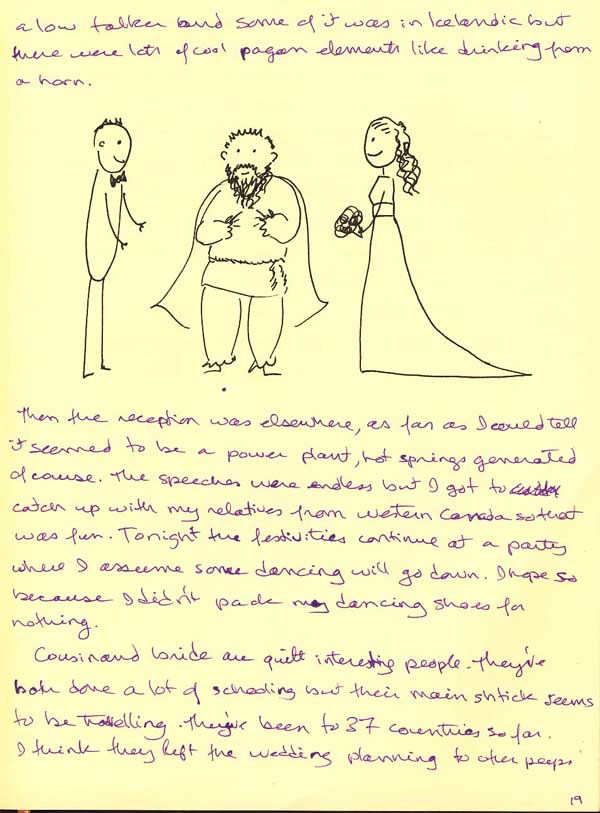 a low talker and some of it was in Icelandic but
there were lots of cool pagan elements like drinking from
a horn.
Then the reception was elsewhere, as far as I could tell
it seemed to be a power plant, hot springs generated
of course. The speeches were endless but I got to
catch up with my relatives from western Canada so that
was fun. Tonight the festivities continue at a party
where I assume some dancing will go down. I hope so
because I didn't pack my dancing shoes for
nothing.
Cousin and bride are quite interesting people. They've
both done a lot of schooling but their main shtick seems
to be travelling. They've been to 37 countries so far.
I think they left the wedding planning to other peeps
19